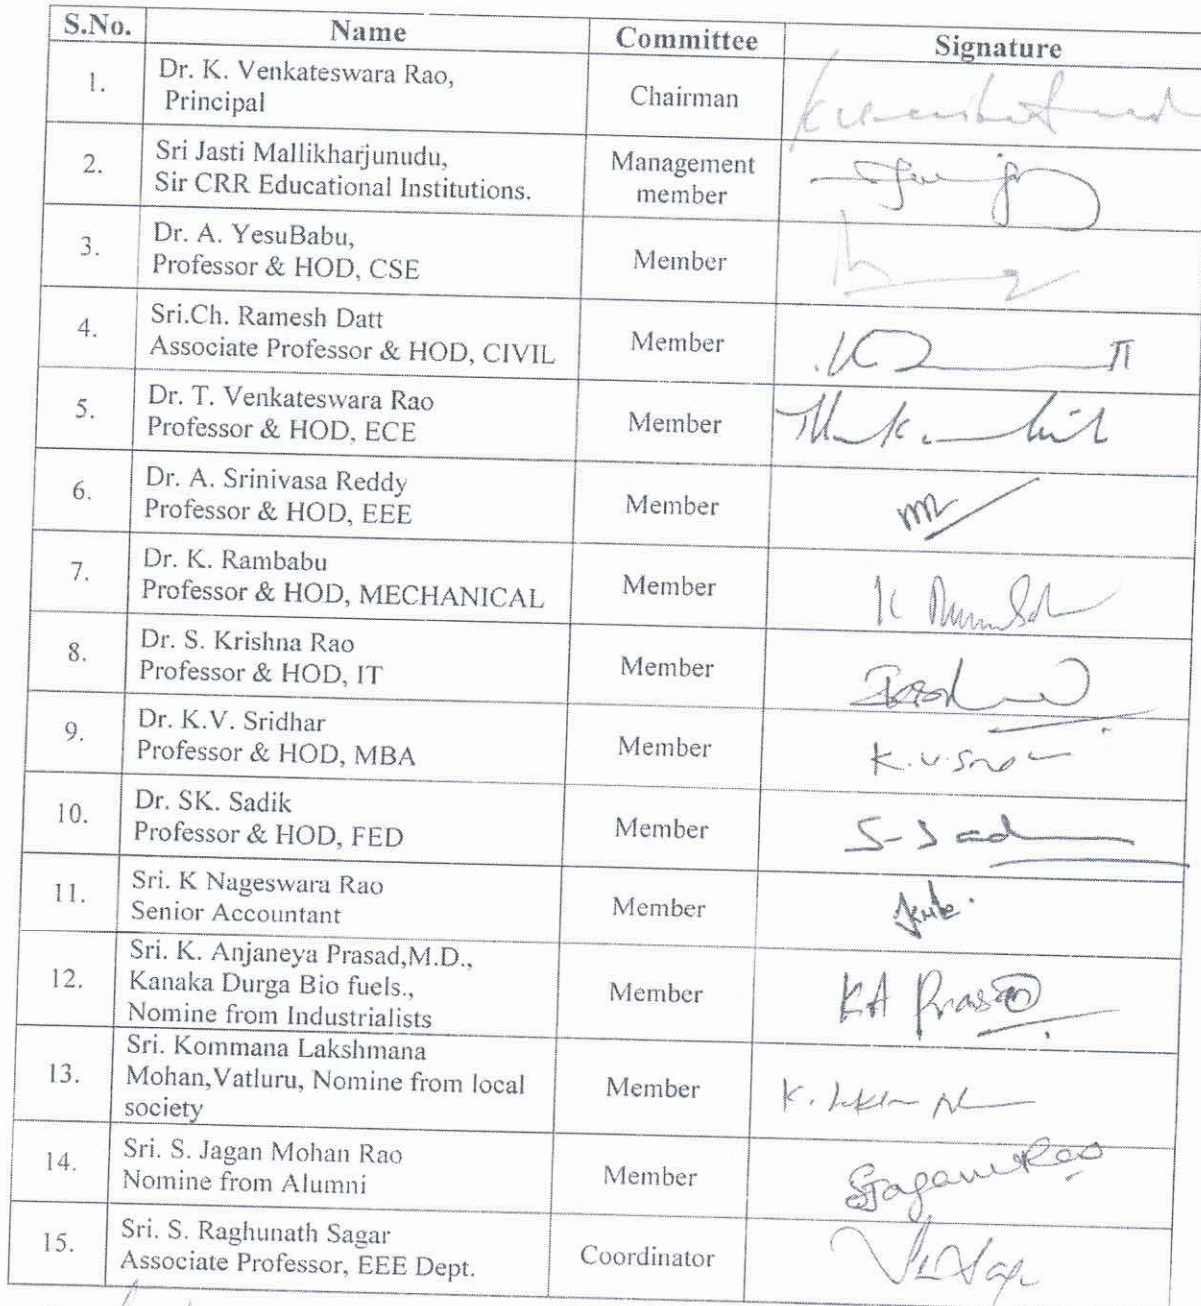 S.No. Name Committee Signature
1. Dr. K. Venkateswara Rao,
Principal Chairman
2. Sri Jasti Mallikharjunudu,
Sir CRR Educational Institutions. Management
member
3. Dr. A. YesuBabu,
Professor & HOD, CSE Member
4. Sri.Ch. Ramesh Datt
Associate Professor & HOD, CIVIL Member
5. Dr. T. Venkateswara Rao
Professor & HOD, ECE Member
6. Dr. A. Srinivasa Reddy
Professor & HOD, EEE Member
7. Dr. K. Rambabu
Professor & HOD, MECHANICAL Member
8. Dr. S. Krishna Rao
Professor & HOD, IT Member
9. Dr. K.V. Sridhar
Professor & HOD, MBA Member
10. Dr. SK. Sadik
Professor & HOD, FED Member
11. Sri. K Nageswara Rao
Senior Accountant Member
12. Sri. K. Anjaneya Prasad,M.D.,
Kanaka Durga Bio fuels.,
Nomine from Industrialists Member KA Prasad
13. Sri. Kommana Lakshmana
Mohan,Vatluru, Nomine from local
society Member
14. Sri. S. Jagan Mohan Rao
Nomine from Alumni Member
15. Sri. S. Raghunath Sagar
Associate Professor, EEE Dept. Coordinator